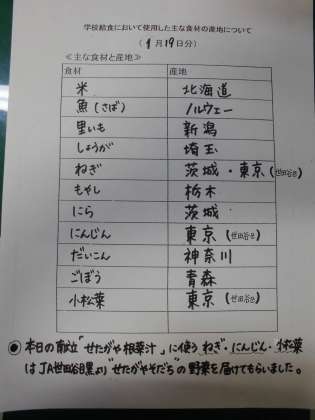 学校給食において使用した主な食材の産地について
(1月19日分)
≪主な食材と産地≫
食材 産地
米 北海道
魚(さば) ノルウェー
里いも 新潟
しょうが 埼玉
ねぎ 茨城・東京(世田谷区)
もやし 栃木
にら 茨城
にんじん 東京(世田谷区)
だいこん 神奈川
ごぼう 青森
小松菜 東京(世田谷区)
◉本日の献立"せたがや根菜汁"に使う ねぎ・にんじん・小松菜
はJA世田谷目黒より"せたがやそだち"の野菜を届けてもらいました。